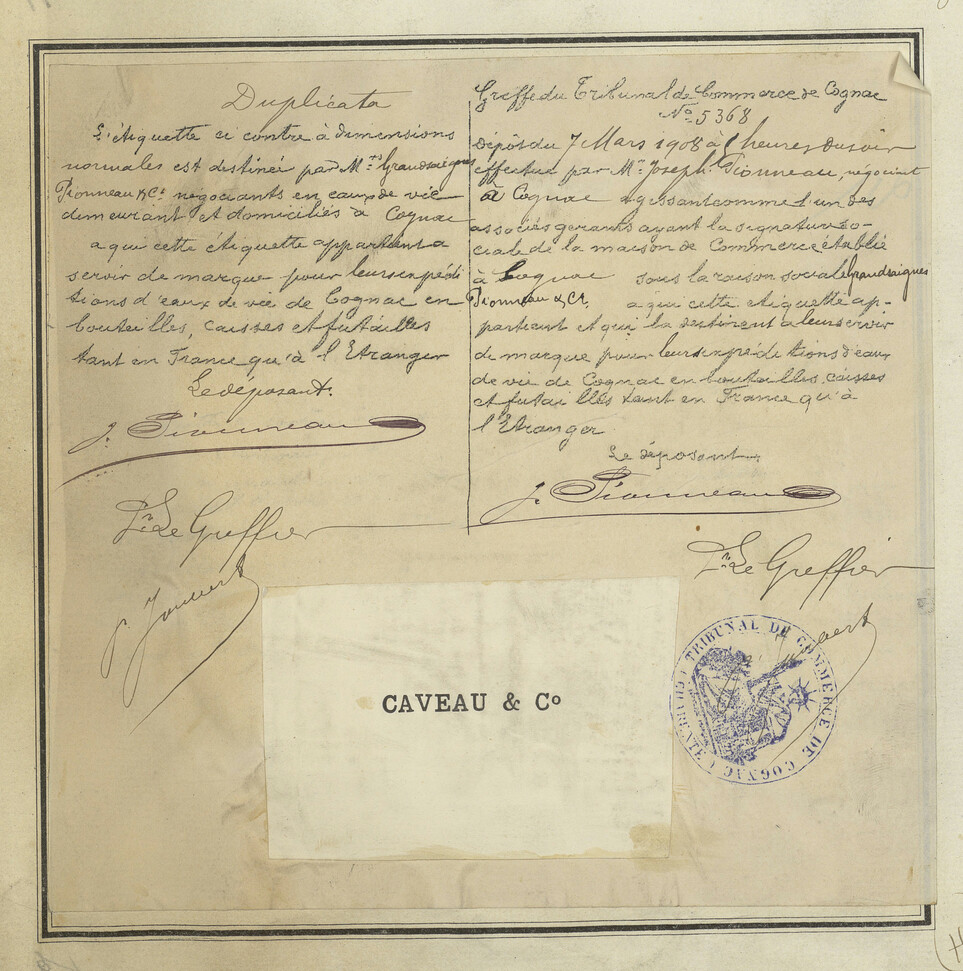 Duplicata
L'étiquette ci contre à dimensions
normales est destinée par Mrs Grandsaignes
Pionneau & Ce négociants en eaux de vie
demeurant et domiciliés à Cognac
a qui cette étiquette appartient a
servir de marque pour leurs expédi
tions d'eaux de vie de Cognac en
bouteilles, caisses et futailles
tant en France qu'à l'Etranger
Le déposant.
J. Pionneau
Pr Le Greffier
Greffe du Tribunal de Commerce de Cognac
No 5368
Dépôt du 7 Mars 1908 à heures du soir
effectué par Mr Joseph Pionneau, négociant
à Cognac agissant comme l'un des
associés gérants ayant la signature so-
ciale de la maison de Commerce établie
à Cognac sous la raison sociale Grandsaignes
Pionneau & Ce, a qui cette etiquette ap-
partient et qui la destinent a leur servir
de marque pour leurs expéditions d'eaux
de vie de Cognac en bouteilles, caisses
et futailles tant en France qu'à
l'Etranger
Le déposant
J. Pionneau
Pr Le Greffier
TRIBUNAL DE COMMERCE DE COGNAC (CHARENTE)
CAVEAU & Co